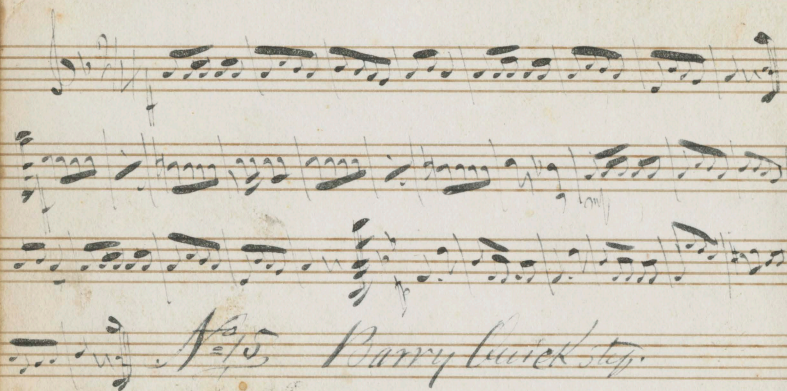 No 15 Barry Quick step.